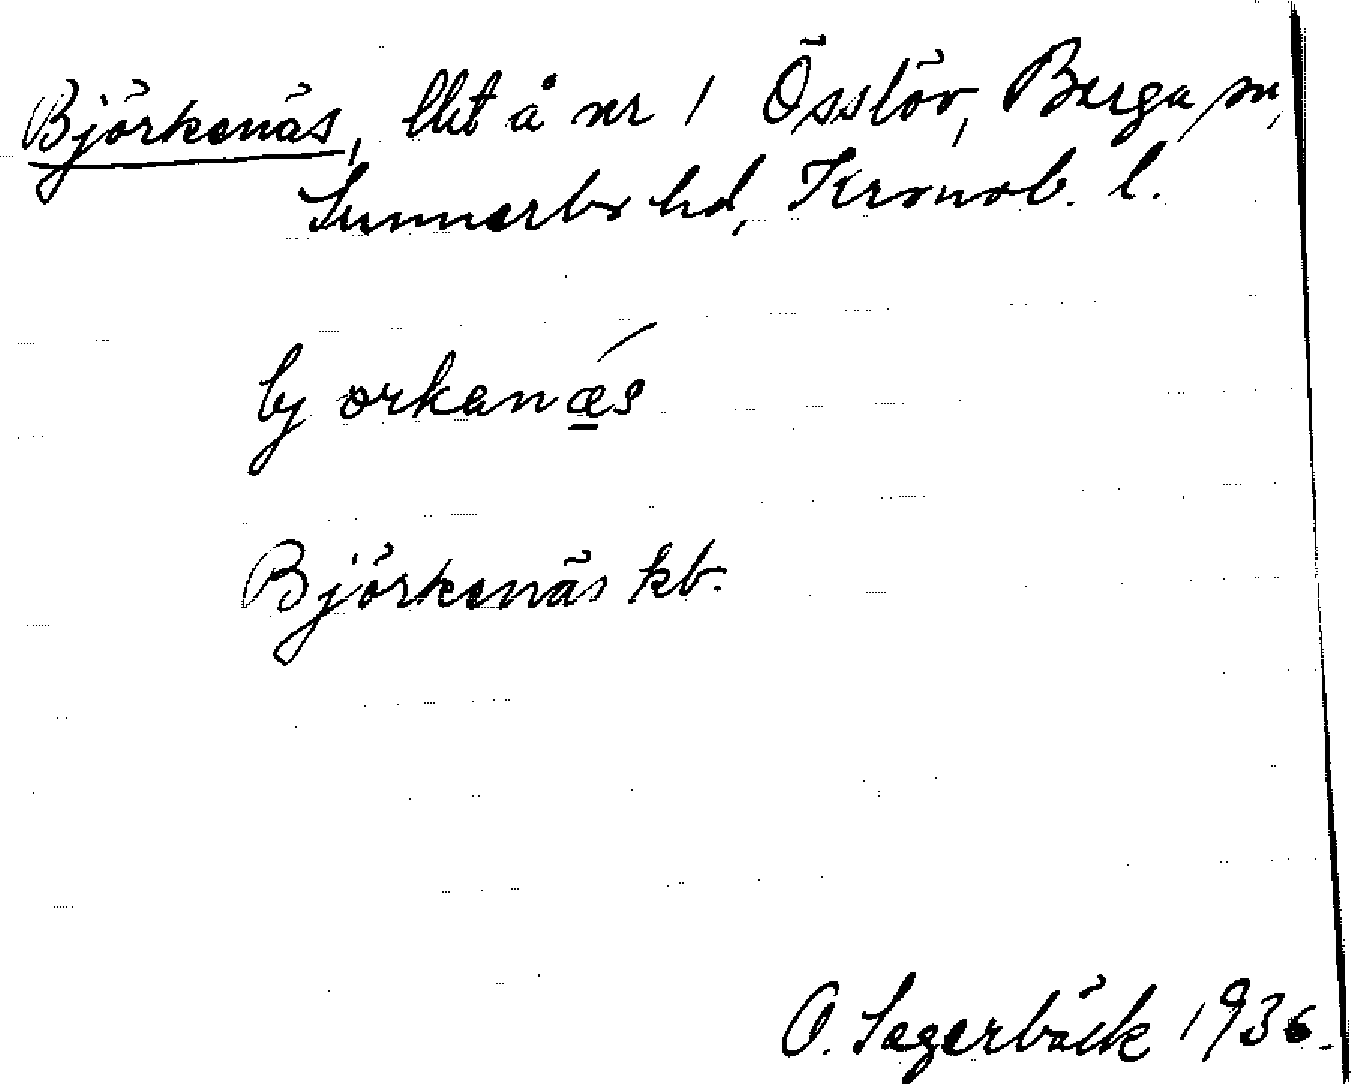 Björkenäs, lht å nr 1 Össlöv, Berga sn,
Sunnerbo hd, Kronob. l.
bjorkanæs
Björkenäs kb.
O. Sagerbäck 1936.